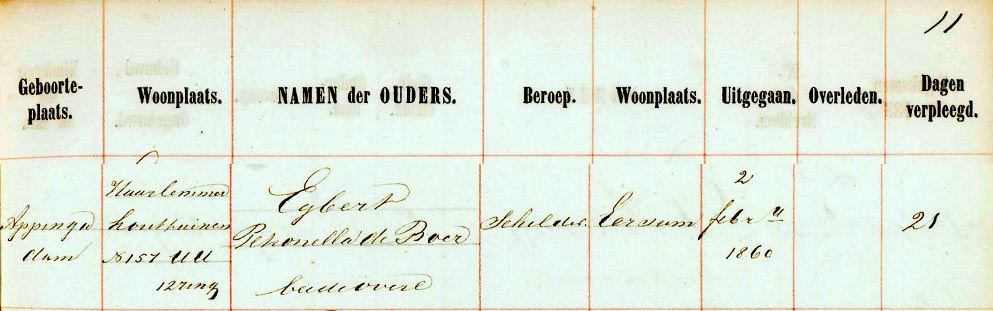 11
Geboorte-
plaats.
Woonplaats.
NAMEN der OUDERS.
Beroep.
Woonplaats.
Uitgegaan.
Overleden.
Dagen
verpleegd.
Appinga
dam
Haarlemmer
houttuinen
N 157 UU
Egbert
Petronella de Boer
beide overl
Schilder
2
febru
1860
21